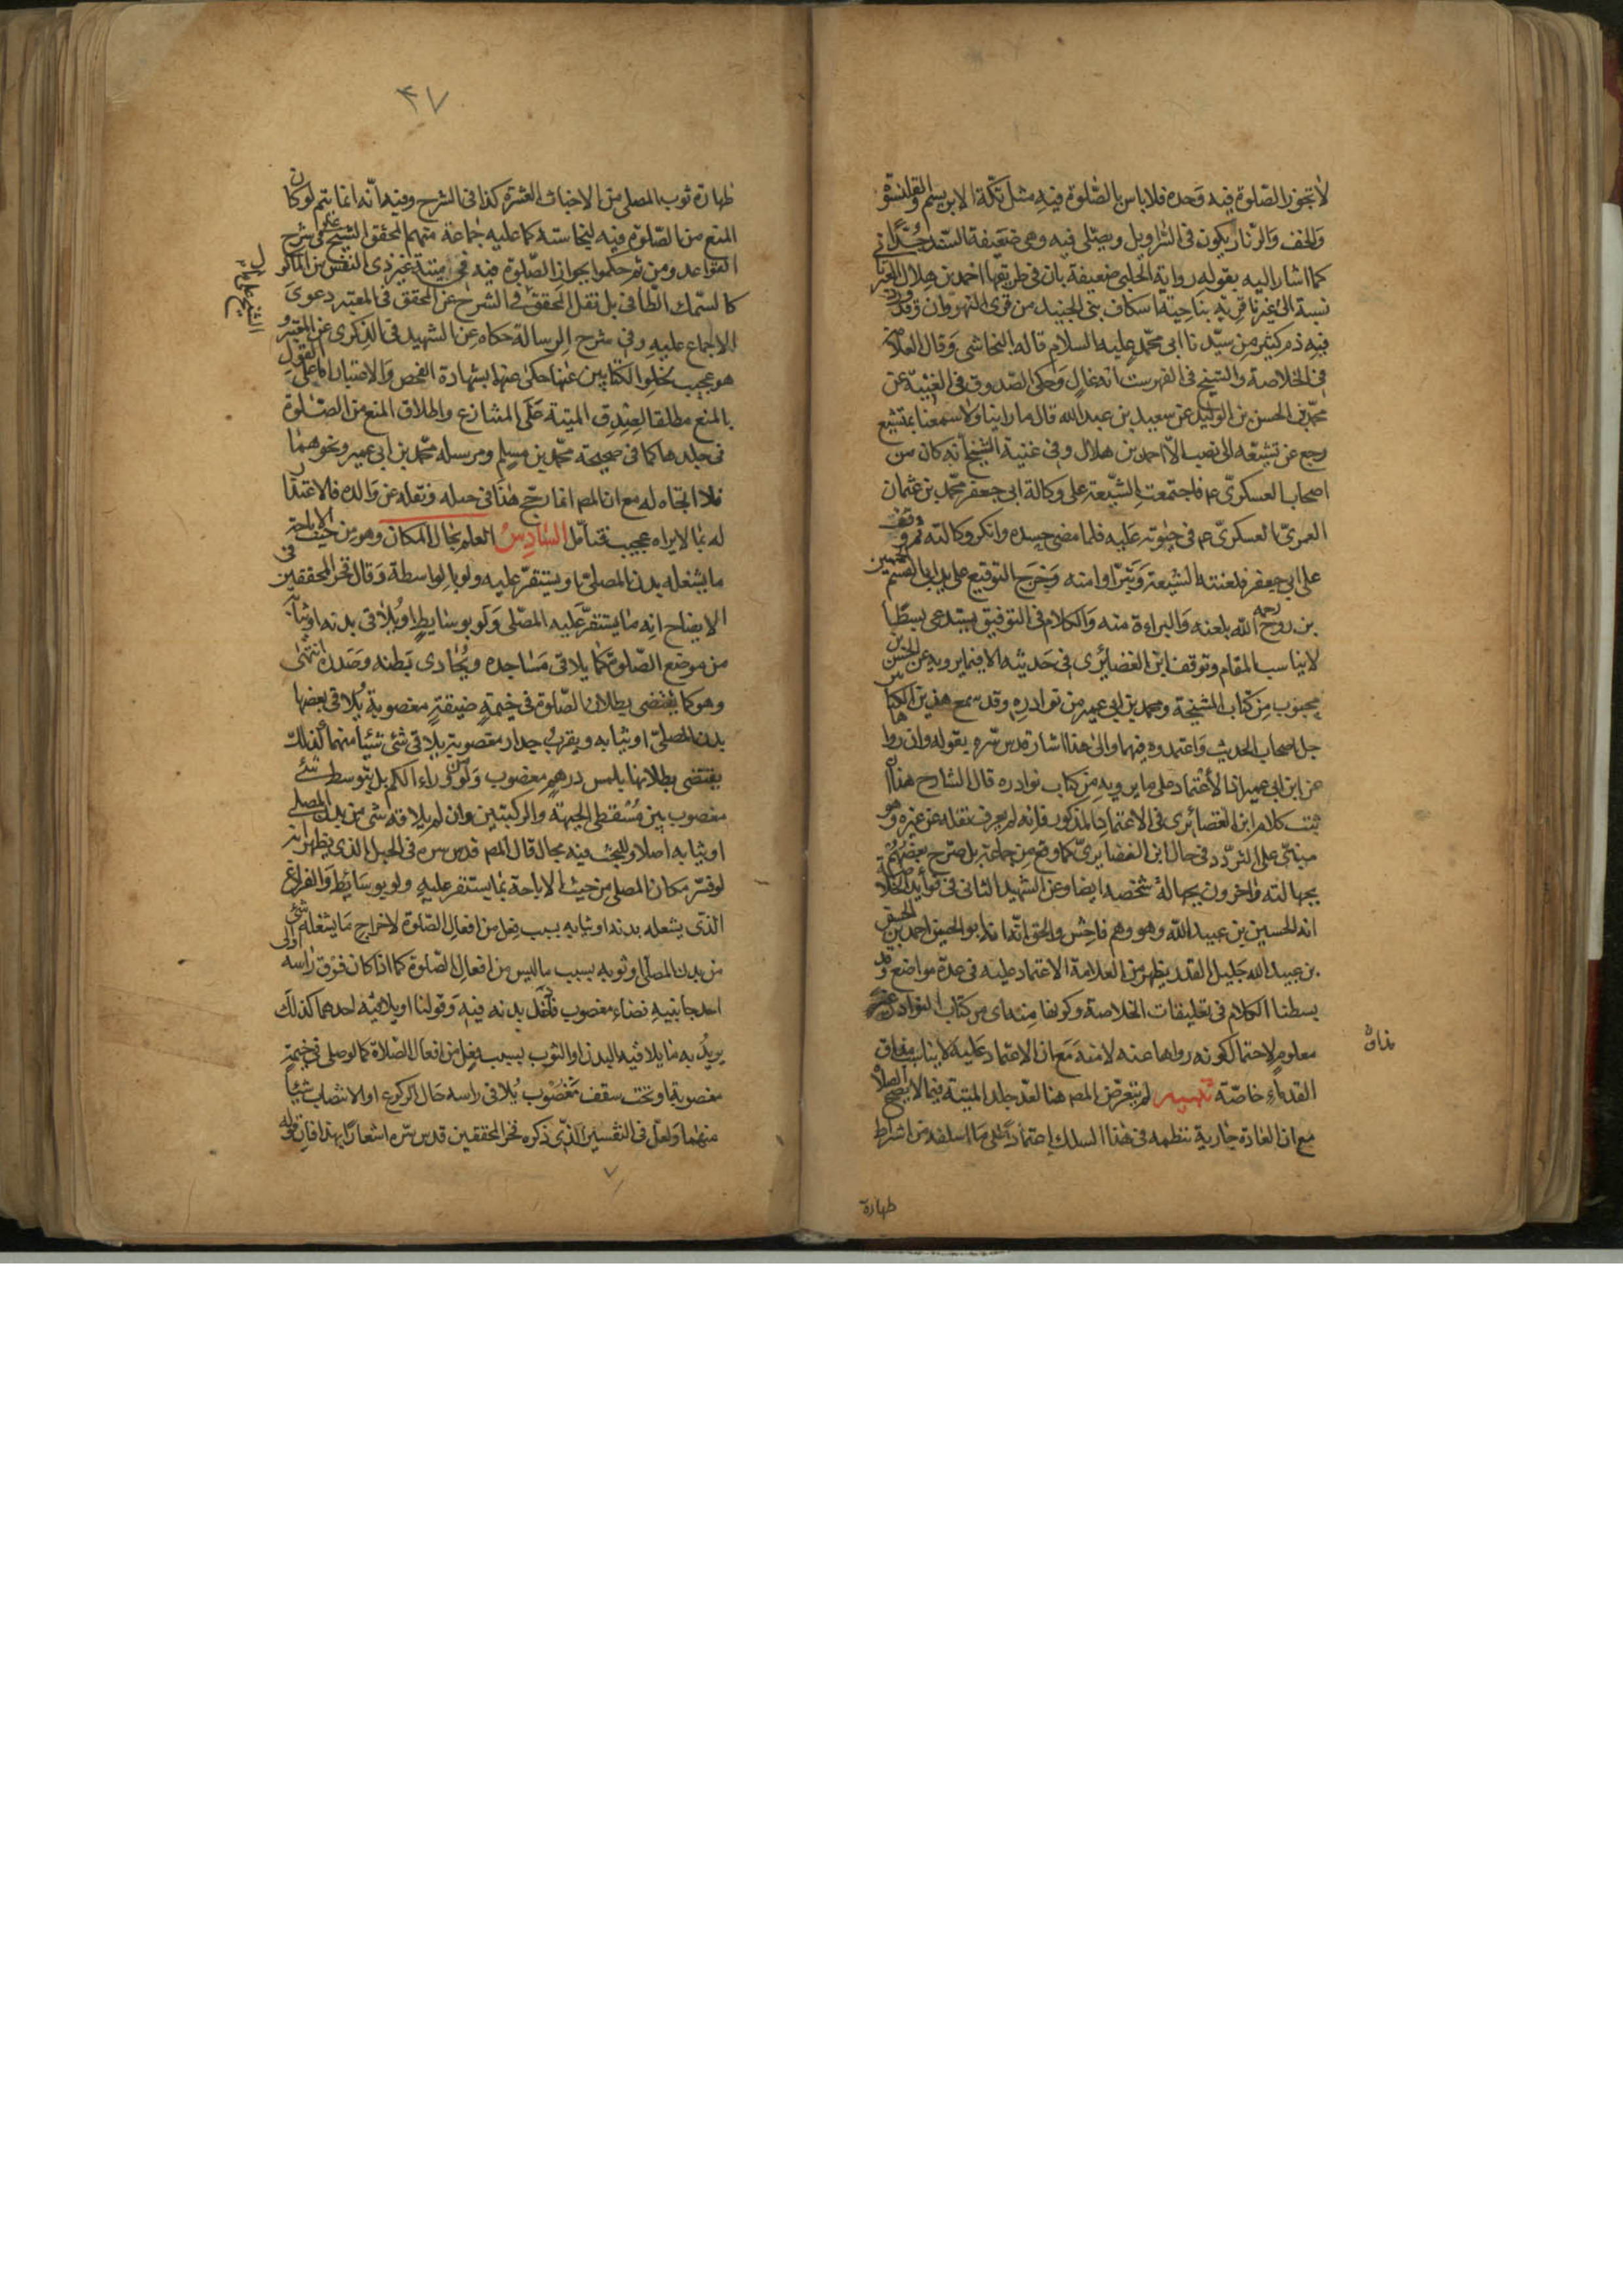 لا تجوز الصّلوة فيه وحده فلا باس بالصّلوة فيه مثل تكّة الابريسم والقلنسوة
والخف والزنار يكون في السّراويل ويصلّى فيه وهي ضعيفة السّند جدّا
كما اشار اليه بقوله رواية الحلبي ضعيفة بان في طريقها احمد بن هلال العبرتائي
نسبة الى عبرتا قرية بناحية اسكاف بني الجنيد من قرى النهروان وقد ورد
فيه ذم كثير من سيّدنا ابي محمّد عليه السلام قاله النجاشي وقال العلامة
في الخلاصة والشيخ في الفهرست انه غال وحكى الصّدوق في الغيبة عن
محمّد بن الحسن بن الوليد عن سعد بن عبد الله قال ما راينا ولا سمعنا بمتشيع
رجع عن تشيّعه الى نصب الّا احمد بن هلال وفي غيبة الشيخ انه كان من
اصحاب العسكريّ عم فاجتمعت الشّيعة على وكالة ابي جعفر محمّد بن عثمان
العمريّ العسكريّ عم في حيوته عليه فلما مضى جسده وانكر وكالته ووقف
على ابي جعفر فلعنته الشيعة وتبرّاوا منه وخرج التوقيع على يد ابي القسم الحسين
بن روح رحمه الله بلعنه والبراءة منه والكلام في التوفيق يستدعي بسطا
لا يناسب المقام وتوقف ابن الغضايري في حديثه الا فيما يرويه عن الحسن بن
محبوب من كتاب المشيخة ومحمد بن ابي عمير من نوادره وقد سمع هذين الكتابين
جل اصحاب الحديث واعتمدوه فيهما والى هذا اشار قدس سره بقوله وان رواها
عن ابن ابي عمير اذ الاعتماد على ما يرويه من كتاب نوادره قال الشارح هذا ان
ثبت كلام ابن الغضائري في الاعتماد المذكور فانه لم يعرف نقله عن غيره وهو
مبنيّ على التردّد في حال ابن الغضايريّ كما وقع من جماعة بل صرّح بعضهم
بجهالته واخرون بجهالة شخصه ايضا وعن الشهيد الثاني في
انه الحسين بن عبيد الله وهو وهم فاحش والحق انّما هو ابو الحسين احمد بن الحسين
بن عبيد الله جليل القدر يظهر من العلامة الاعتماد عليه في عدة مواضع وقد
بسطنا الكلام في تعليقات الخلاصة وكونها من كتاب النوادر غير
معلوم لاحتمال كونه رواها عنه لا منه مع ان الاعتماد عليه لا يناسب مذاق
مذاق
القدماء خاصّة تنبيه لم يتعرّض المصر هنا لعد جلد الميتة فيما لا يصح الصلاة
مع ان العادة جارية بنظمه في هذا السلك اعتمادا على ما اسلفه من اشراط
طهارة
٤٧
طهارة ثوب المصلي من الاخباث العشرة كذا في الشرح وفيه انّه انما يتم لو كان
المنع من الصّلوة فيه لنجاسته كما عليه جماعة منهم المحقق الشيخ علي في شرح
القواعد ومن ثم حكموا بجواز الصّلوة فيه في ميتة غير ذي النفس من الماكول
كالسّمك الطّافي بل نقل المحقق في الشرح عن المحقق في المعتبر دعوى
الاجماع عليه وفي شرح الرسالة حكاه عن الشهيد في الذكرى عن المعتبر و
هو عجيب لخلو الكتابين عنها حكى عنهما بشهادة الفحص والاعتبار اما على القول
بالمنع مطلقا لصدق الميتة على المتنازع واطلاق المنع من الصّلوة
في جلدها كما في صحيحة محمّد بن مسلم ومرسله محمّد بن ابي عمير ونحوهما
فلا اتجاه له مع ان المصر انما رجّح هذا في حبله ونقله عن والده فالاعتذار
له بما لا يراه عجيب فتامّل السّادس العلم بحال المكان وهو من حيث الاباحة
ما يشغله بدن المصلّي او يستقرّ عليه ولو بالواسطة وقال فخر المحققين في
الايضاح انه ما يستقرّ عليه المصلّى ولو بوسايط او يلاقى بدنه او ثيابه
من موضع الصّلوة كما يلاقي مساجده ويحاذي بطنه وصدره انتهى
وهو كما يقتضي بطلان الصّلوة في خيمة ضيقة مغصوبة يلاقي بعضها
بدن المصلّي او ثيابه وبقرب جدار مغصوبة يلاقي شيء شيئا منهما كذلك
يقتضي بطلانها بلمس درهم مغصوب ولو من وراء الكم بل بتوسط شيء
مغصوب بين مسقطي الجبهة والركبتين وان لم يلاقه شيء من بدن المصلي
او ثيابه اصلا وللبحث فيه مجال قال المصر قدس سره في الحبل الذي يظهر انه
لو فسّر مكان المصلي من حيث الاباحة بما يستقر عليه ولو بوسايط والفراغ
الذي يشغله بدنه او ثيابه بسبب فعل من افعال الصّلوة لاخراج ما يشغله شيء
من بدن المصلّى او ثوبه بسبب ما ليس من افعال الصّلوة كما اذا كان فوق راسه او الى
احد جانبيه فضاء مغصوب فادخل بدنه فيه وقولنا او يلاقيه احدهما كذلك
يريد به ما يلاقيه البدن او الثوب بسبب فعل من افعال الصّلاة كما لو صلى في خيمة
مغصوبة او تحت سقف مغصوب يلاقي راسه حال الركوع او الانتصاب شيئا
منهما ولعل في التفسير الّذي ذكره فخر المحققين قدس سره اشعارا بهذا فان قوله